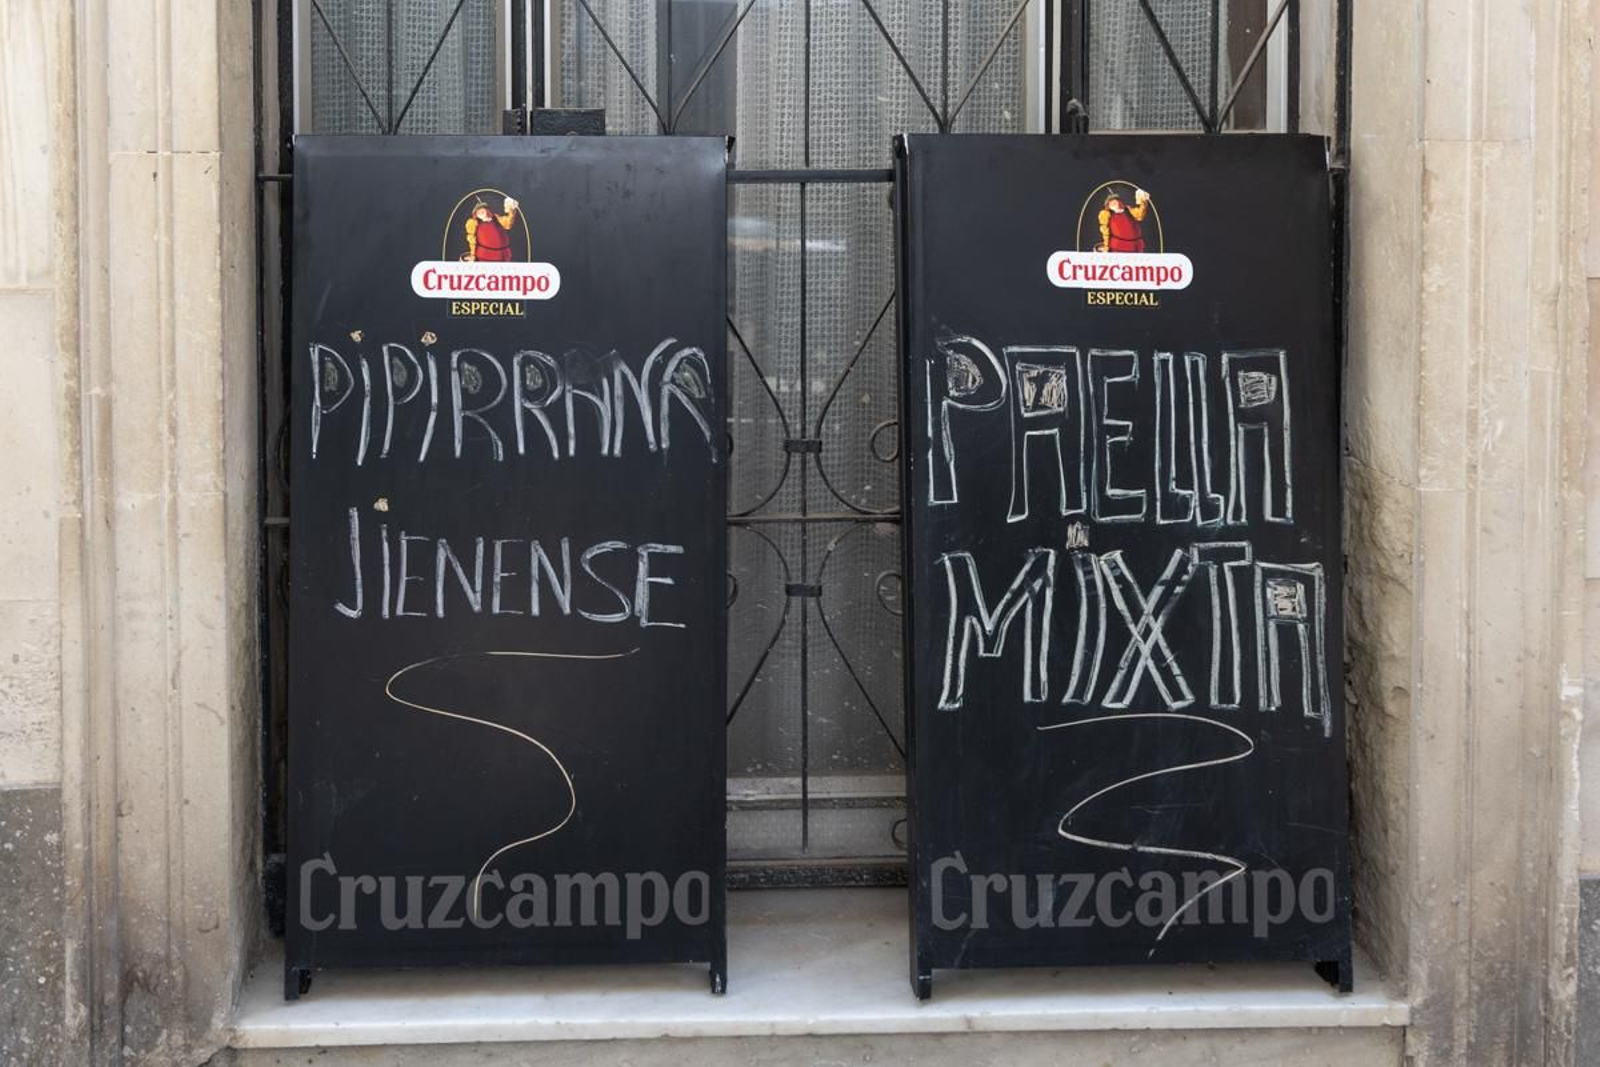 Cruzcampo
ESPECIAL
PiPiRRANA
JiENENSE
Cruzcampo
Cruzcampo
ESPECIAL
PAELLA
MiXTA
Cruzcampo